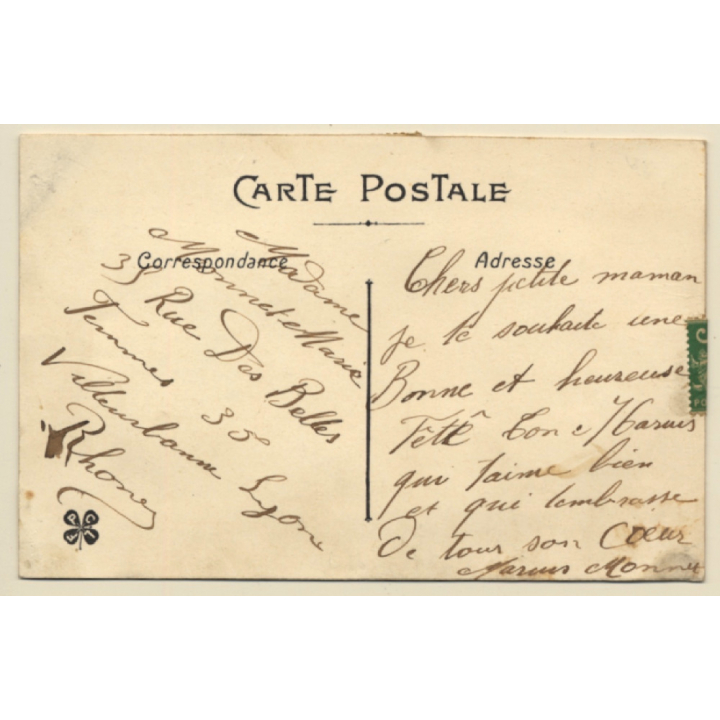 CARTE POSTALE
Correspondance
Adresse
Madame
Monnet Marie
35 Rue Des Belles
Femmes 35
Villeurbanne Lyon
Rhone
Chers petite maman
je te souhaite une
Bonne et heureuse
Fête Ton Marius
qui taime bien
et qui lembrasse
De tour son Cœur
Marius Monnet